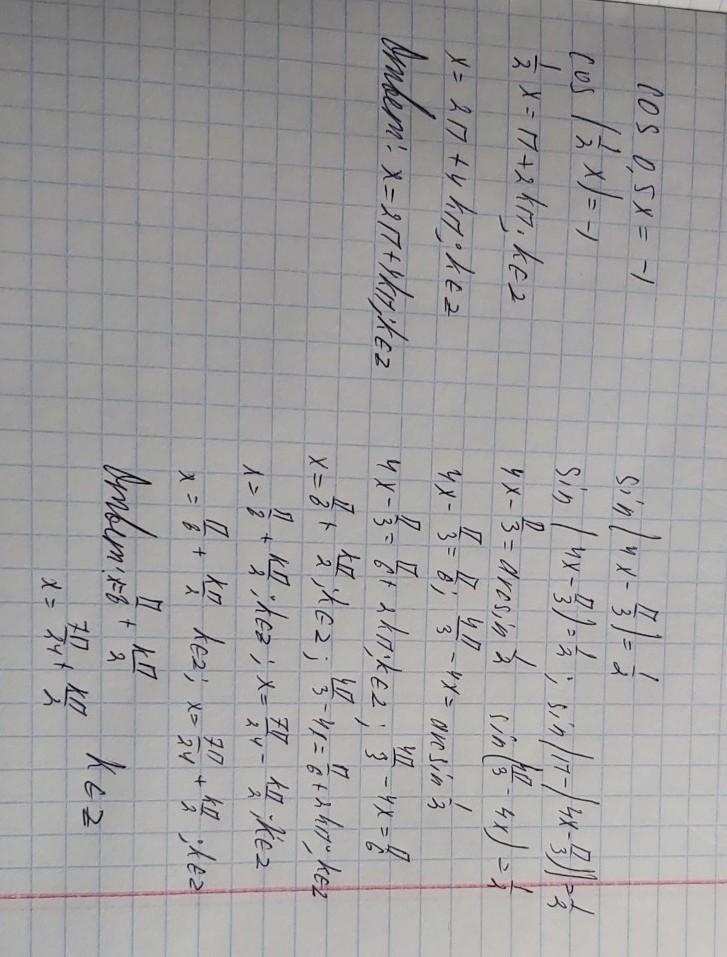 cos 0,5x = -1
cos (1/2 x) = -1
1/2 x = π + 2kπ; k∈z
x = 2π + 4kπ; k∈z
Ответ: x = 2π + 4kπ; k∈z
sin (4x - π/3) = 1/2
sin (4x - π/3) = 1/2; sin (π - (4x - π/3)) = 1/2
4x - π/3 = arcsin 1/2 sin (4π/3 - 4x) = 1/2
4x - π/3 = π/6; 4π/3 - 4x = arcsin 1/2
4x - π/3 = π/6 + 2kπ; k∈z; 4π/3 - 4x = π/6
x = π/8 + kπ/2; k∈z; 4π/3 - 4x = π/6 + 2kπ; k∈z
x = π/8 + kπ/2; k∈z; x = 7π/24 - kπ/2; k∈z
x = π/8 + kπ/2 k∈z; x = 7π/24 + kπ/2; k∈z
Ответ: x = π/8 + kπ/2
x = 7π/24 + kπ/2 k∈z